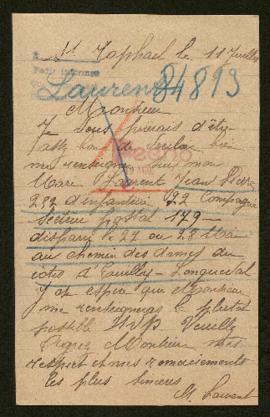 St Raphael le 11 Juillet
Laurent 84893
Monsieur
Je vous prierais d'être
assez bon de vouloir bien
me renseigner sur mon
Mari Laurent Jean
232 d'infanterie 22 Compagnie
Secteur postal 179
disparu le 27 ou 28 Mai
au chemin des dames du
côtés
J'ai espoir que Monsieur
me renseignera le plus tôt
possible S.V.P. Veuillez
Monsieur mes
respect et mes remerciements
les plus sincères
M. Laurent